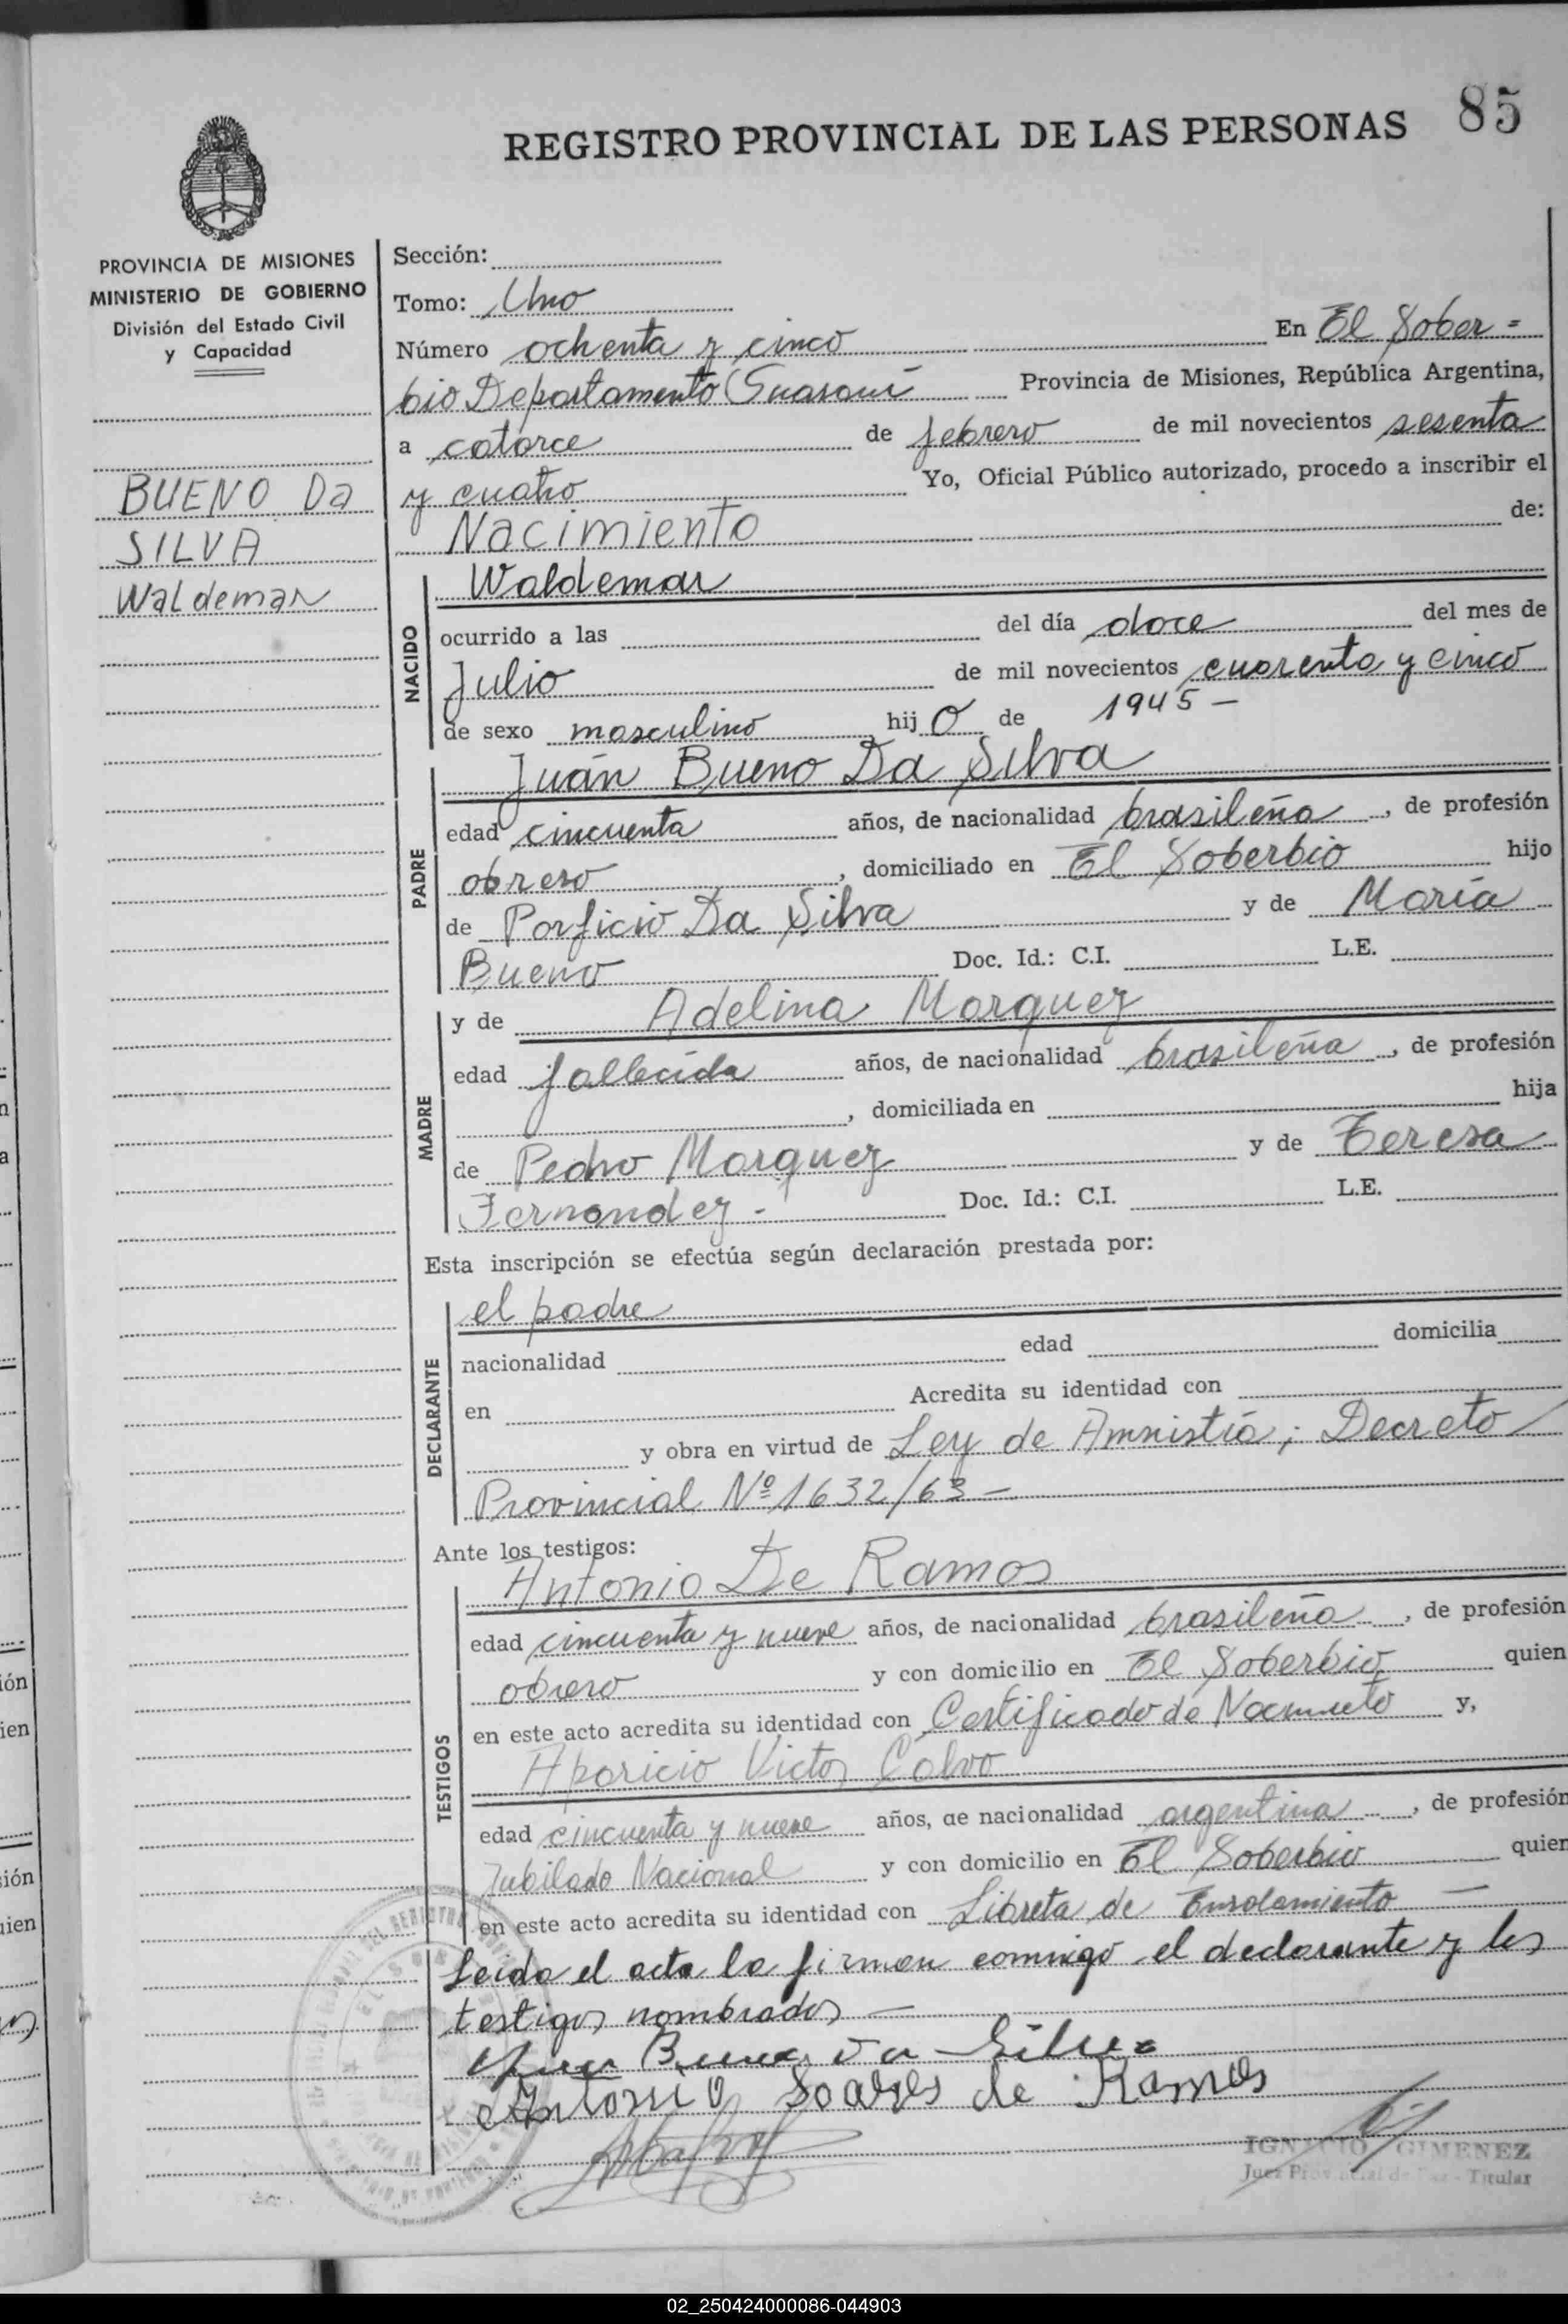 85
REGISTRO PROVINCIAL DE LAS PERSONAS
PROVINCIA DE MISIONES
MINISTERIO DE GOBIERNO
División del Estado Civil
y Capacidad
BUENO Da
SILVA
Waldemar
Sección:
Tomo: Uno
Número ochenta y cinco En El Sober=
bio Departamento Guaraní Provincia de Misiones, República Argentina,
a catorce de febrero de mil novecientos sesenta
y cuatro Yo, Oficial Público autorizado, procedo a inscribir el
Nacimiento de:
NACIDO
Waldemar
ocurrido a las del día doce del mes de
Julio de mil novecientos cuarenta y cinco
1945 —
de sexo masculino hijo de
PADRE
Juán Bueno Da Silva
edad cincuenta años, de nacionalidad brasileña, de profesión
obrero, domiciliado en El Soberbio hijo
de Porficio Da Silva y de María
Bueno Doc. Id.: C.I. L.E.
MADRE
y de Adelina Marquez
edad fallecida años, de nacionalidad brasileña, de profesión
, domiciliada en hija
de Pedro Marquez y de Teresa
Fernandez - Doc. Id.: C.I. L.E.
Esta inscripción se efectúa según declaración prestada por:
DECLARANTE
el padre
nacionalidad edad domicilia
en Acredita su identidad con
y obra en virtud de Ley de Amnistía; Decreto
Provincial Nº 1632/63 —
Ante los testigos:
TESTIGOS
Antonio De Ramos
edad cincuenta y nueve años, de nacionalidad brasileña, de profesión
obrero y con domicilio en El Soberbio quien
en este acto acredita su identidad con Certificado de Nacimieto y,
Aparicio Victor Calvo
edad cincuenta y nueve años, de nacionalidad argentina, de profesión
Jubilado Nacional y con domicilio en El Soberbio quien
en este acto acredita su identidad con Libreta de Enrolamiento —
Leida el acta la firman conmigo el declarante y los
testigos nombrados —
Bueno da Silva
Antonio Soares de Ramos
IGNACIO GIMENEZ
Juez Provincial de Paz - Titular
02_250424000086-044903